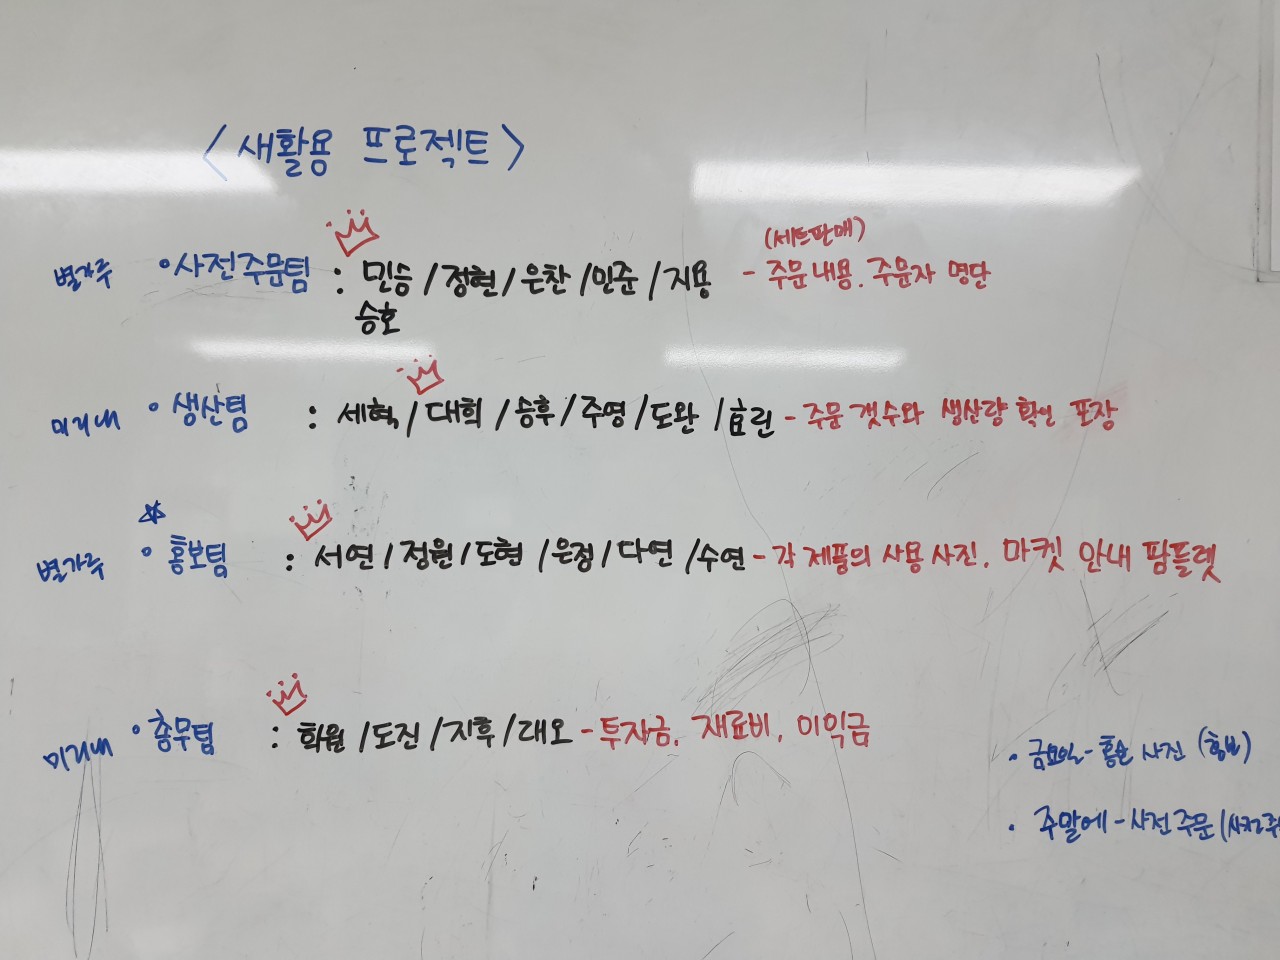 <새활용 프로젝트>
별가루 • 사전주문팀 : 민승 / 정현 / 은찬 / 민준 / 지용 - 주문내용. 주문자 명단
(세트판매)
승호
미리내 • 생산팀 : 세혁 / 대희 / 승후 / 주영 / 도완 / 효린 - 주문 갯수와 생산량 확인 포장
별가루 • 홍보팀 : 서연 / 정원 / 도현 / 은정 / 다연 / 수연 - 각 제품의 사용 사진. 마켓 안내 팜플렛
미리내 • 총무팀 : 화원 / 도진 / 지후 / 대오 - 투자금. 재료비. 이익금
• 금요일 - 홍보 사진 (홍보)
• 주말에 - 사전주문 (사전주